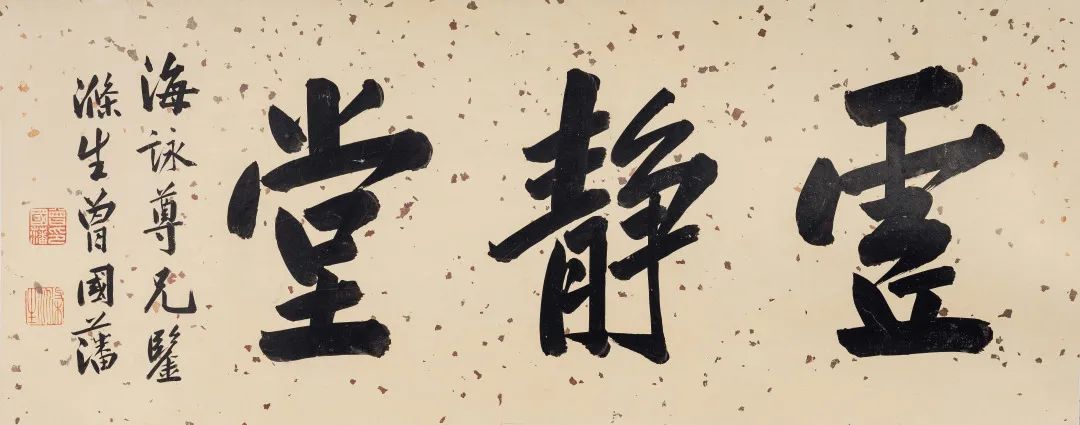 虚静堂
海詠尊兄鑒
滌生曾國藩